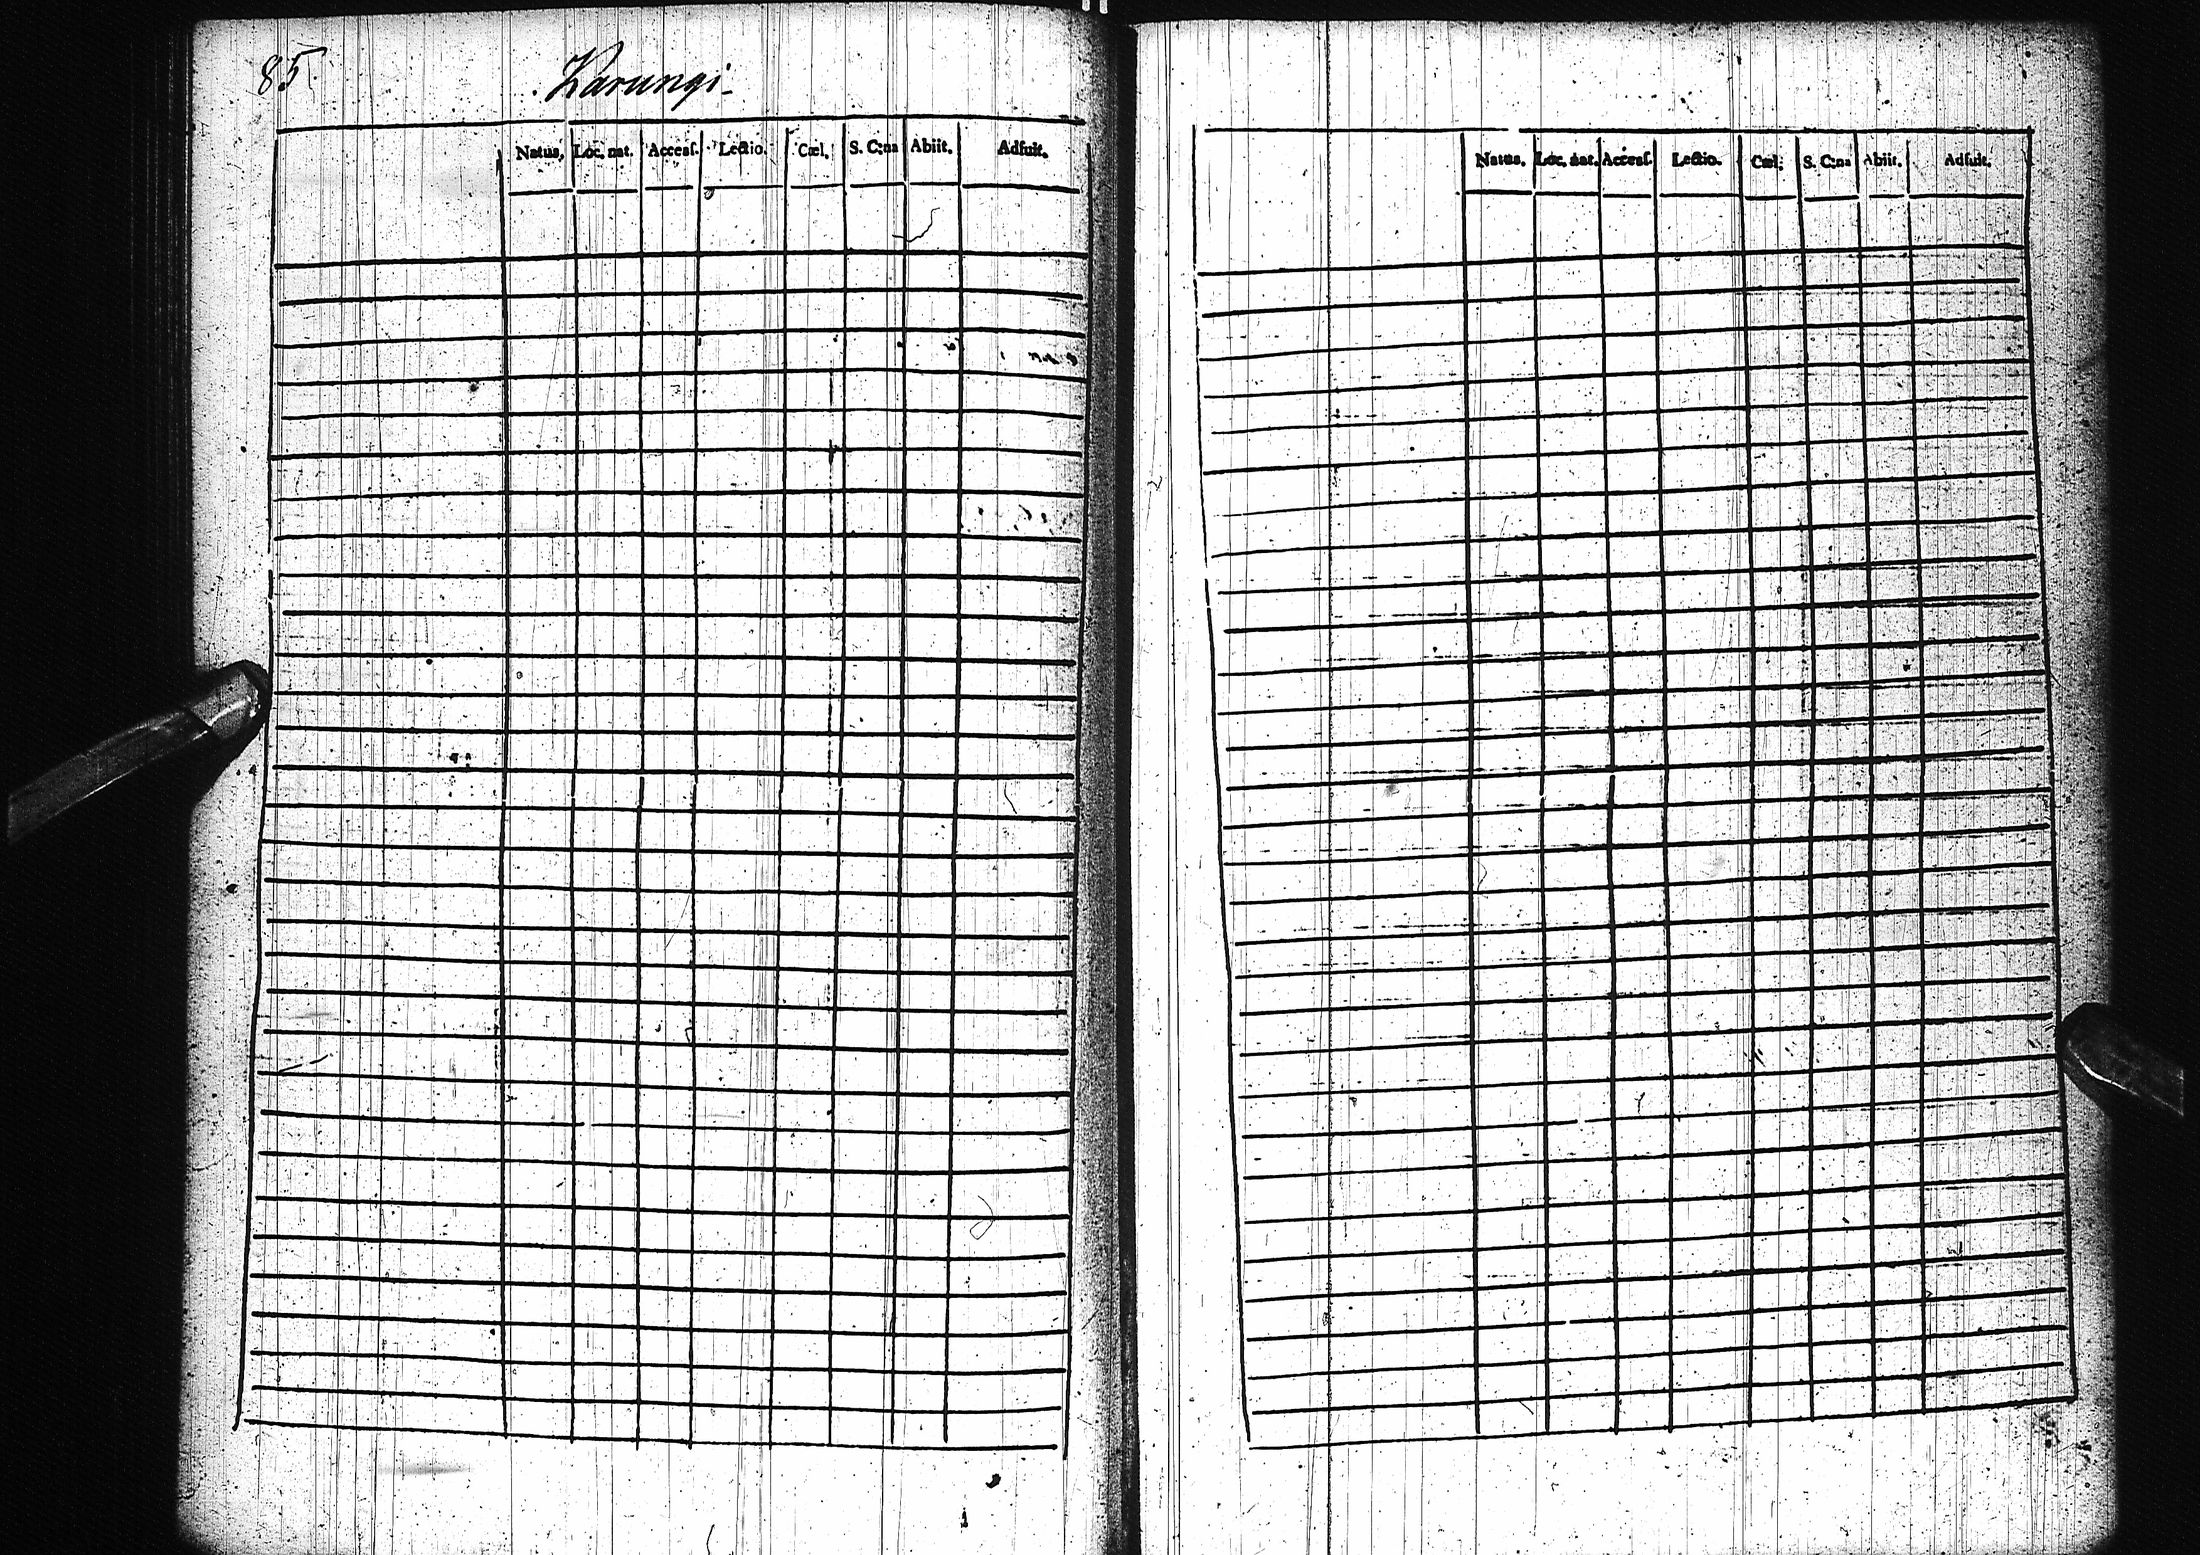 85.
Karungi
Natus. Loc. nat. Access. Lectio. Cœl. S. C:na Abiit. Adfuit.
Natus. Loc. nat. Access. Lectio. Cœl. S. C:na Abiit. Adfuit.